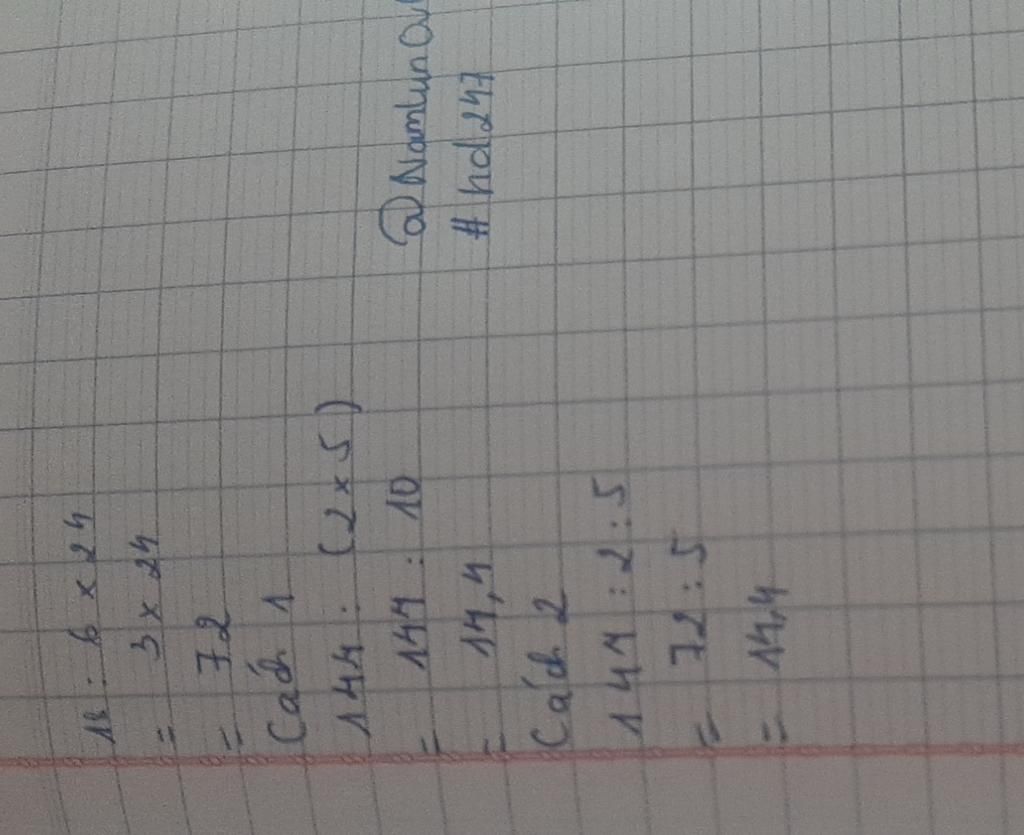 18 : 6 x 24
= 3 x 24
= 72
Cách 1
144 : (2 x 5)
= 144 : 10
= 14,4
Cách 2
144 : 2 : 5
= 72 : 5
= 14,4
# hd247